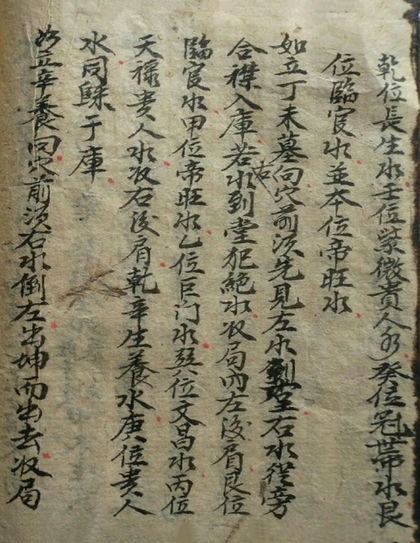 乾位長生水壬位紫微貴人水癸位冠帶水艮
位臨官水並本位帝旺水
如立丁未墓向穴前須先見左水到堂右水從旁
合襟入庫若水到堂犯絕水收局內左後肩艮位
臨官水甲位帝旺水乙位巨门水巽位文昌水丙位
天祿貴人水收右後肩乾辛生養水庚位貴人
水同歸于庫
如立辛養向穴前須右水倒左出坤而出去收局